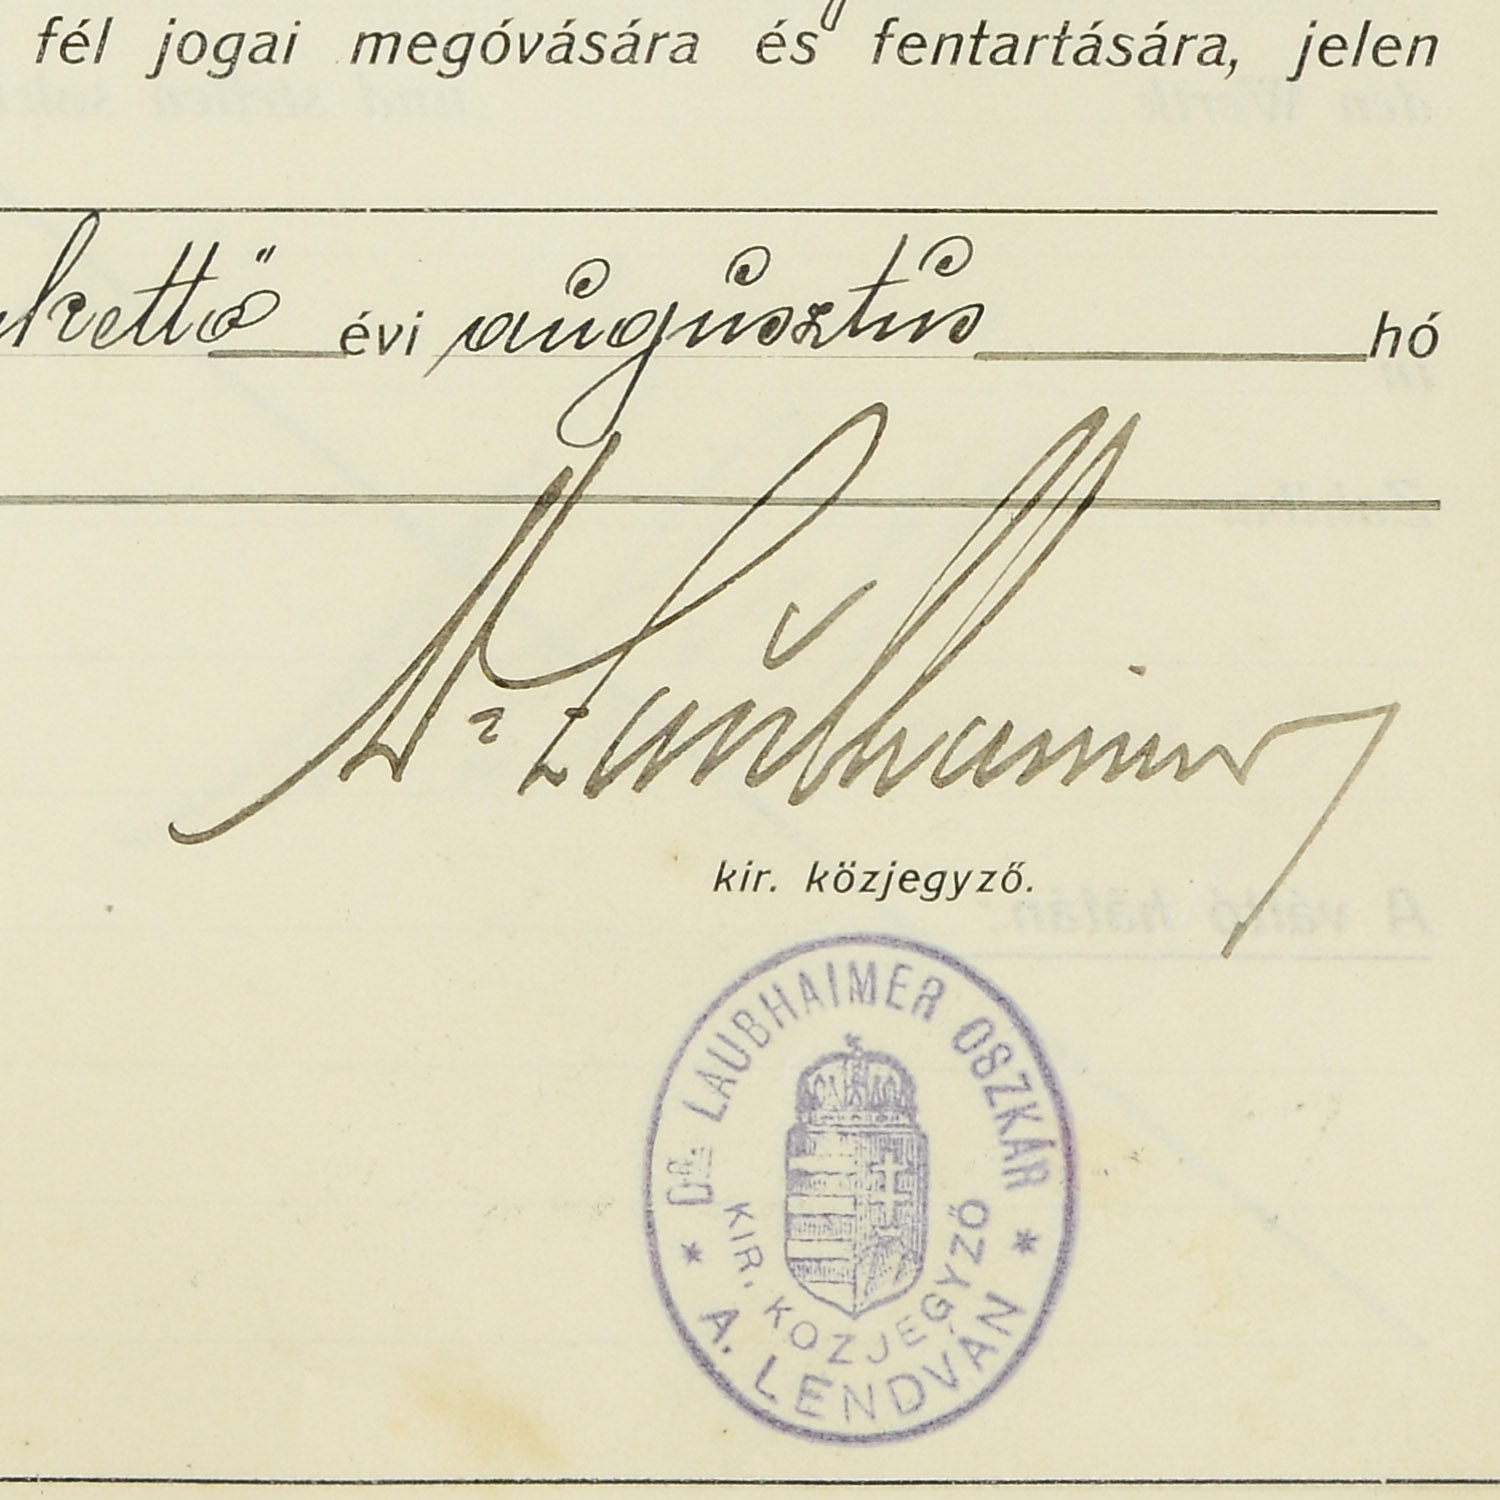 fél jogai megóvására és fentartására, jelen
kettő évi augusztus hó
Dr Laubhaimer
kir. közjegyző.
* DR. LAUBHAIMER OSZKÁR *
KIR. KÖZJEGYZŐ
A. LENDVÁN